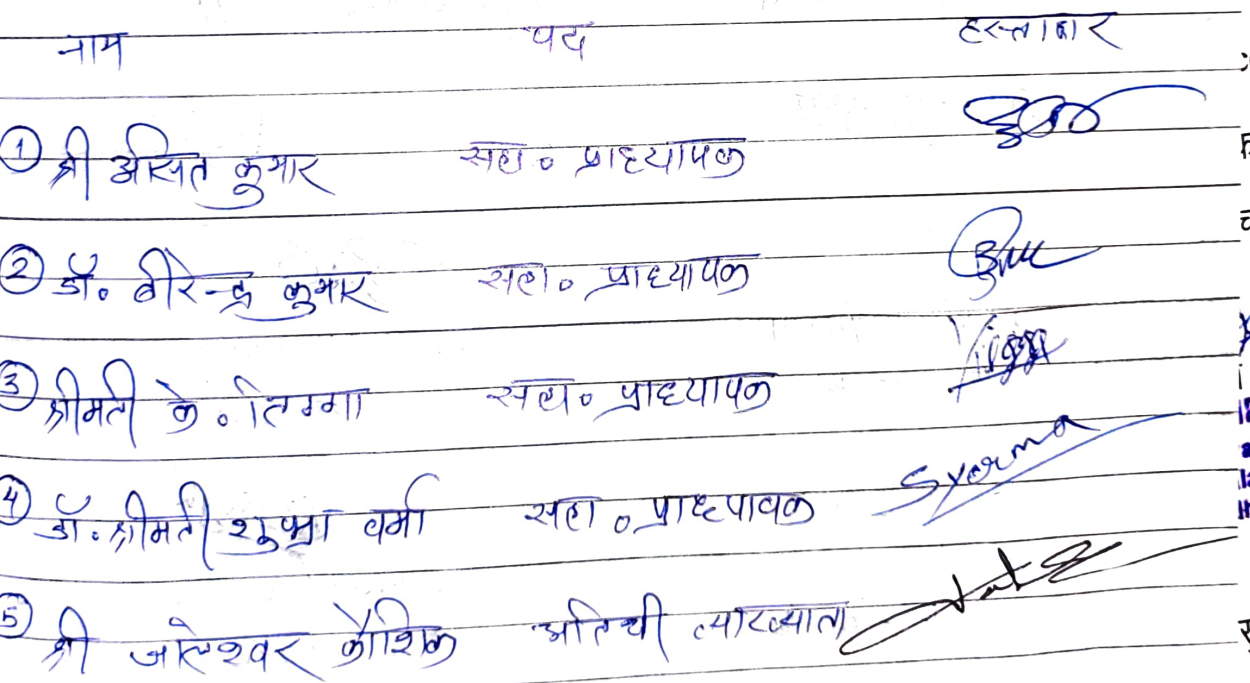 नाम पद हस्ताक्षर
① श्री असित कुमार सहा॰ प्राध्यापक
② डॉ॰ बीरेन्द्र कुमार सहा॰ प्राध्यापक
③ श्रीमती के॰ तिग्गा सहा॰ प्राध्यापक
④ डॉ॰ श्रीमती शुभ्रा वर्मा सहा॰ प्राध्यापक Sverma
⑤ श्री जलेश्वर कौशिक अतिथी व्याख्याता